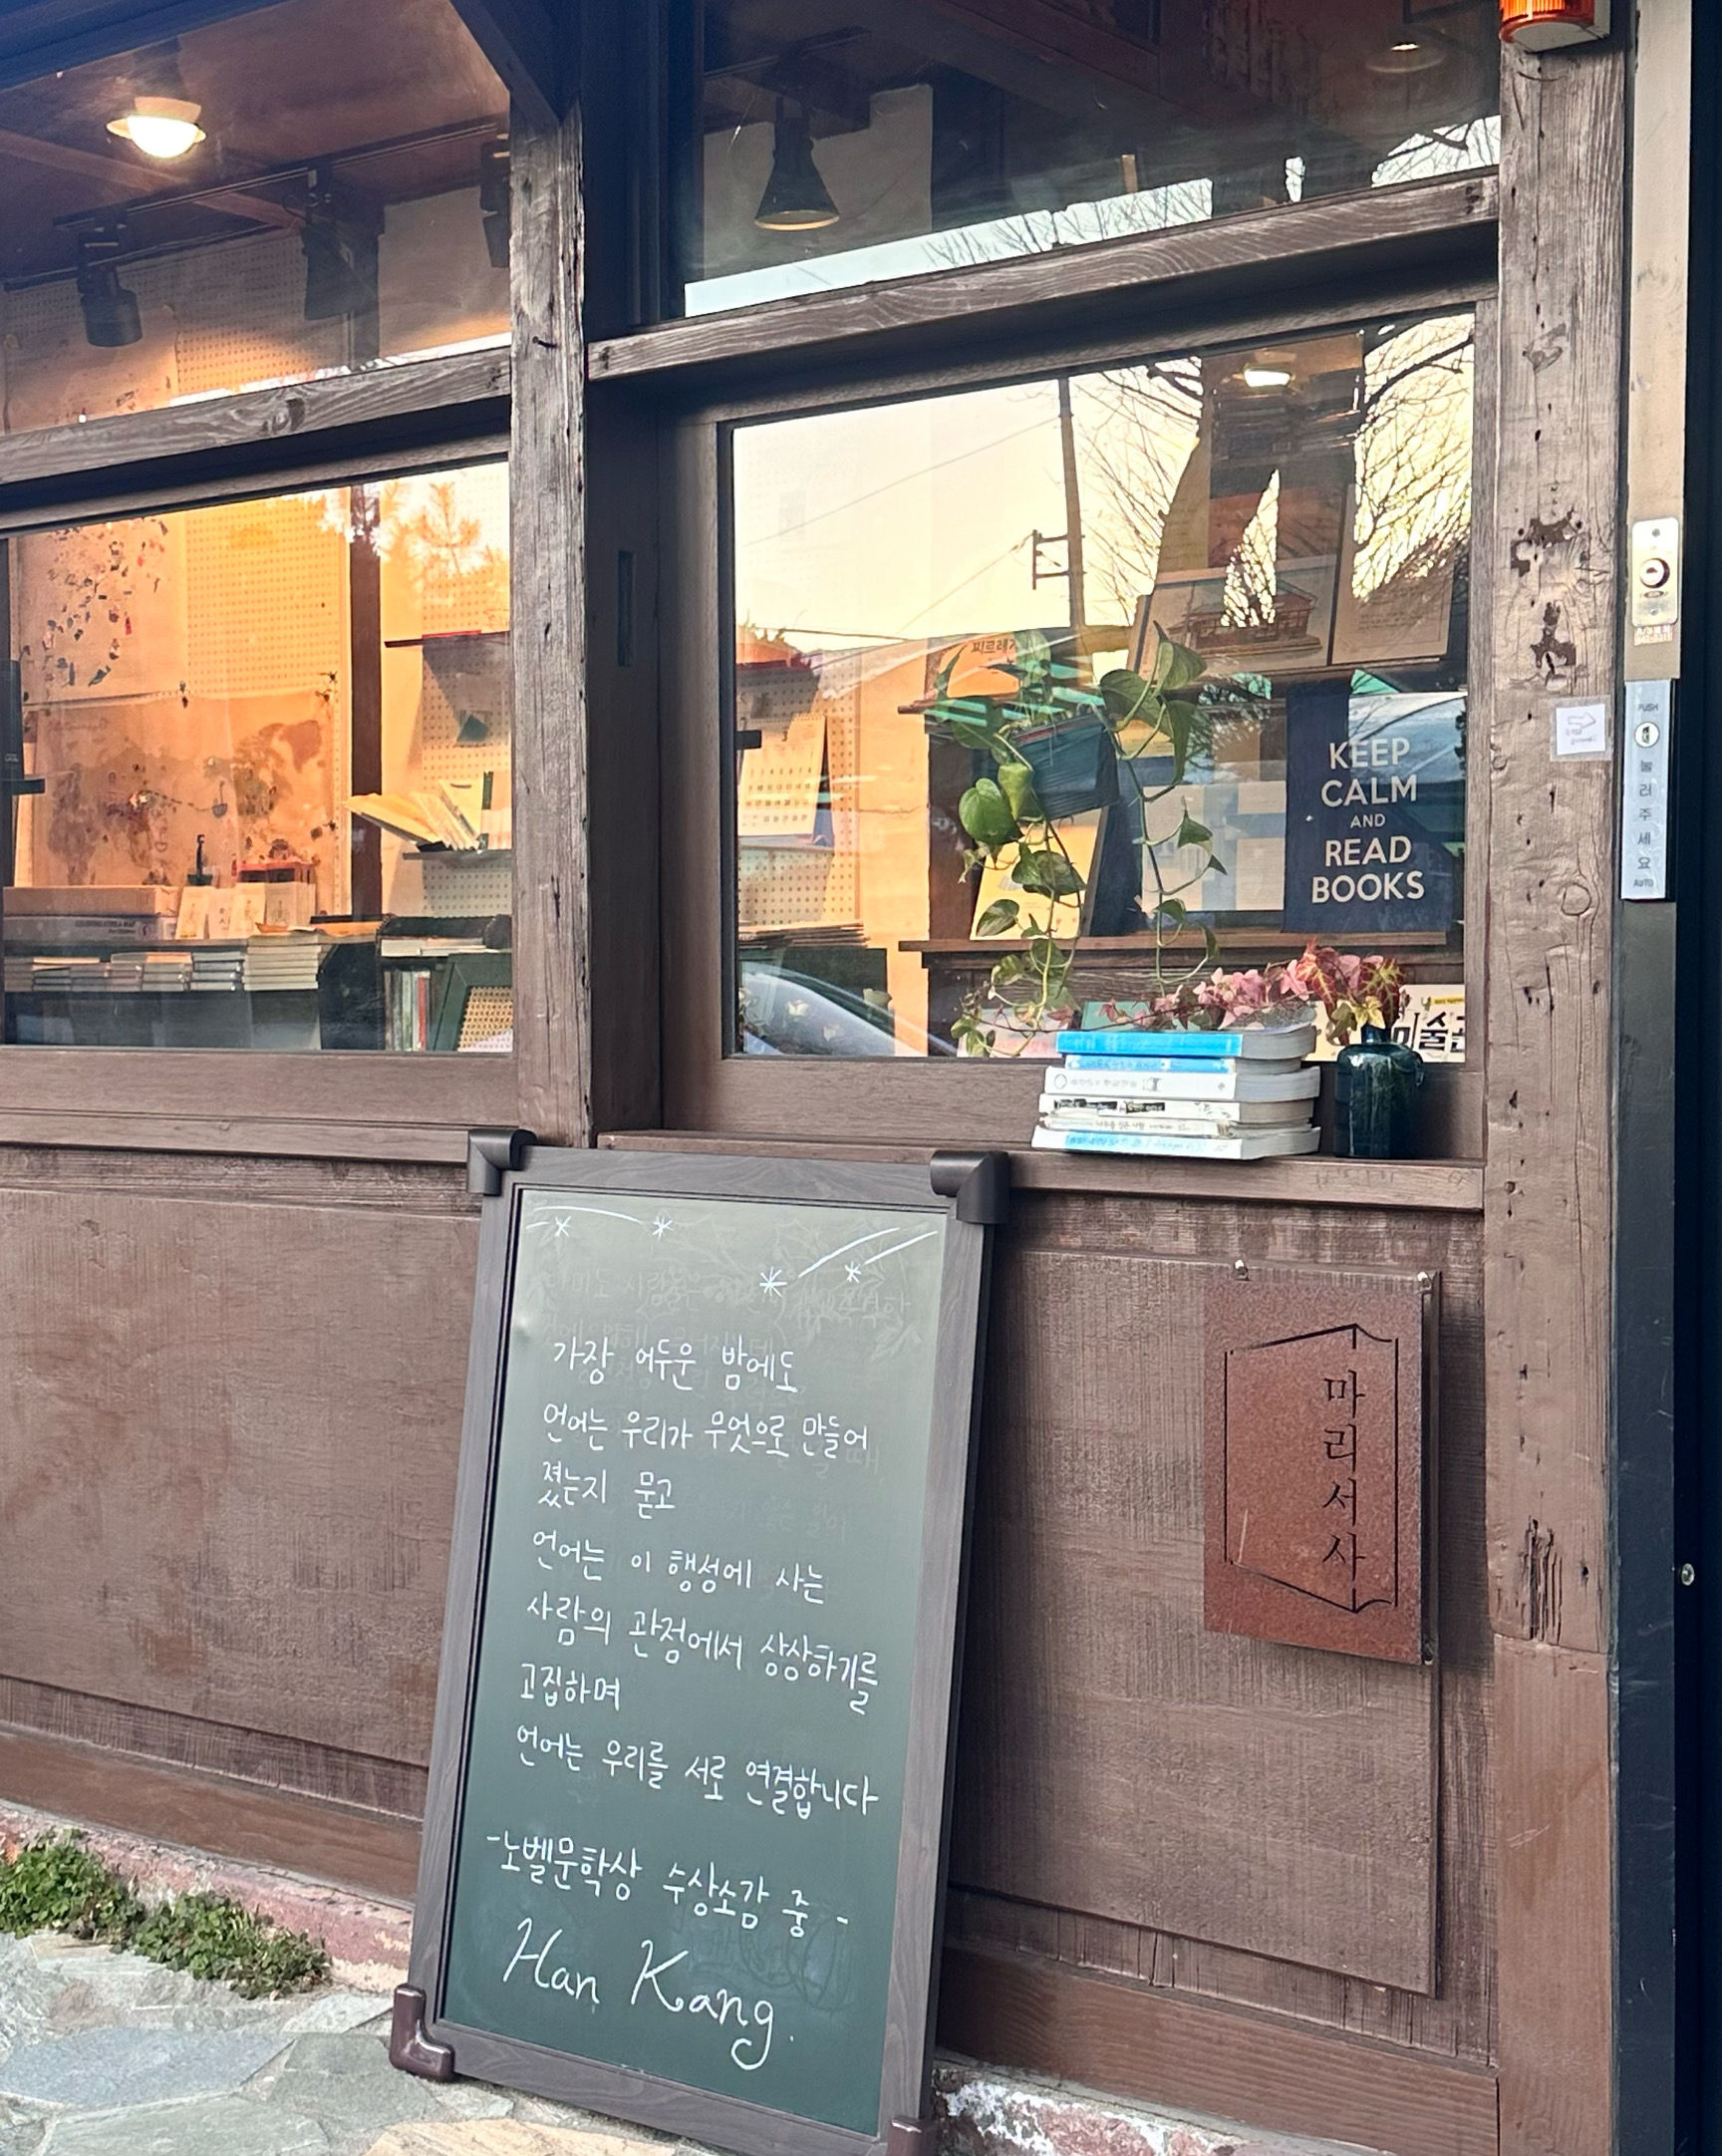 찌르레기
KEEP
CALM
AND
READ
BOOKS
PUSH
눌
러
주
세
요
AUTO
미술
가장 어두운 밤에도
언어는 우리가 무엇으로 만들어
졌는지 묻고
언어는 이 행성에 사는
사람의 관점에서 상상하기를
고집하며
언어는 우리를 서로 연결합니다
-노벨문학상 수상소감 중-
Han Kang.
마
리
서
사